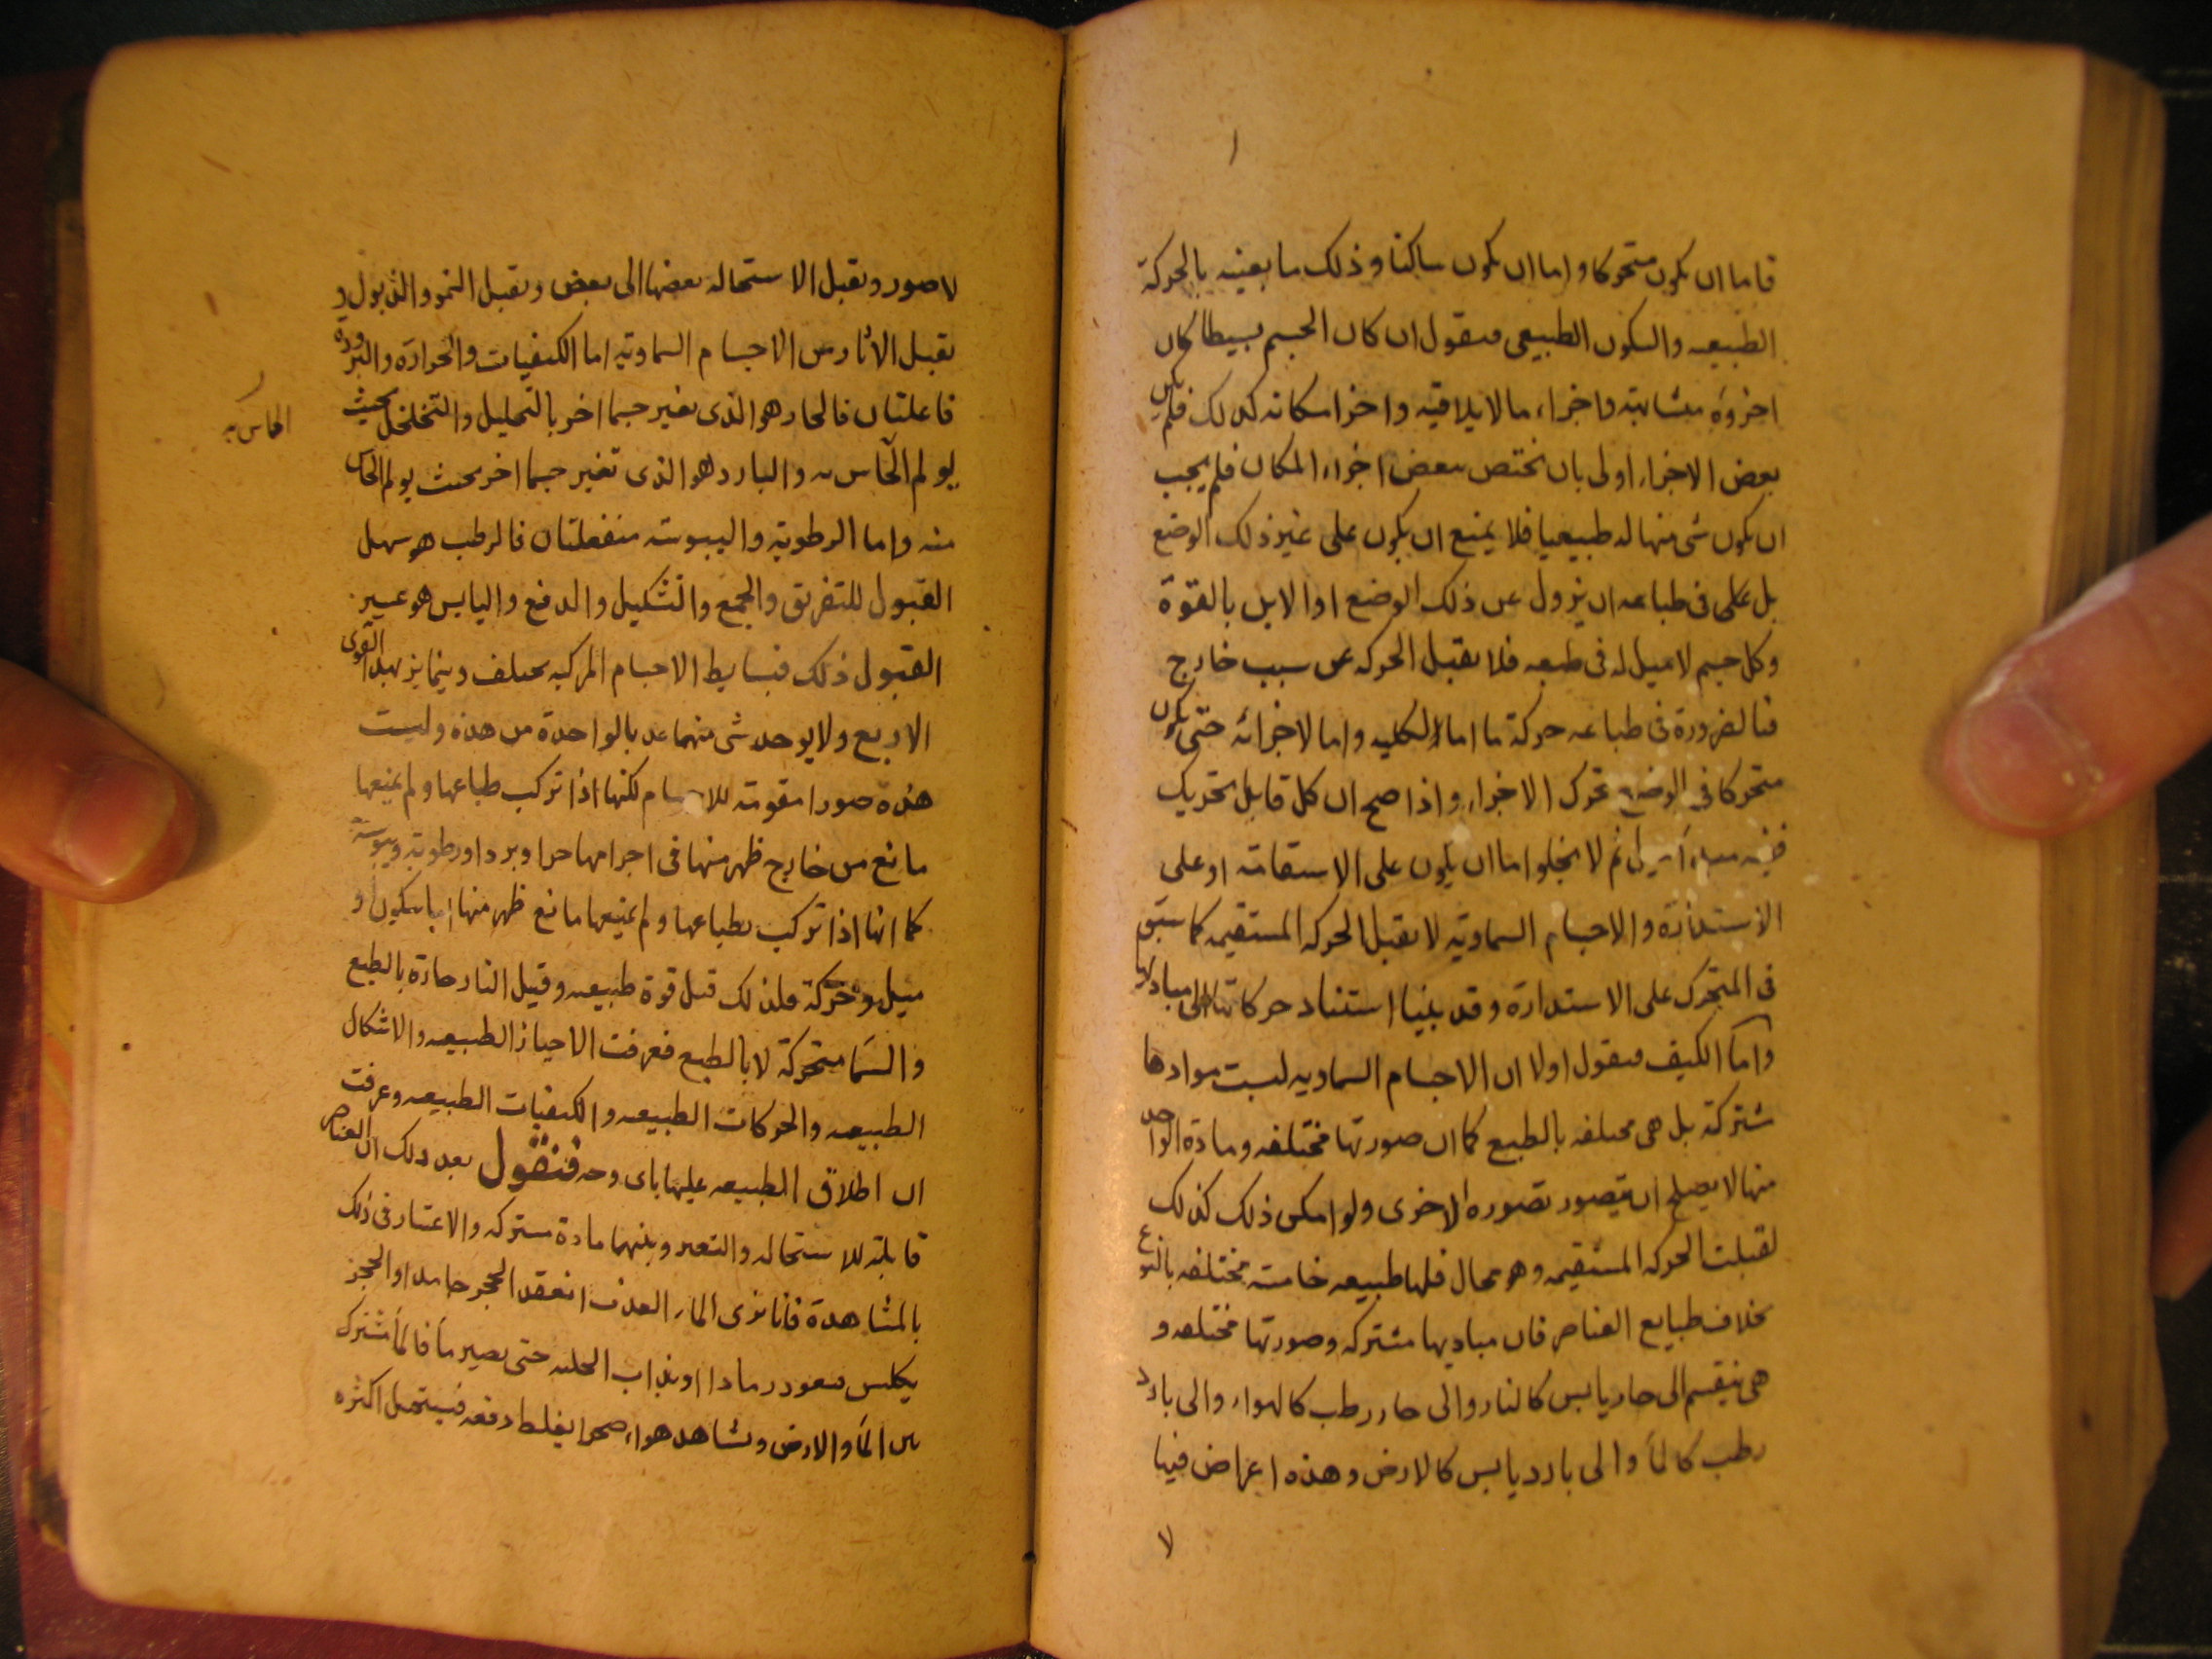 فاما ان يكون متحركا واما ان يكون ساكنا وذلك ما بعينه بالحركة
الطبيعه والسكون الطبيعى فنقول ان كان الجسم بسيطا كان
اجزوه متشابهة واجزاء ما لا يلاقيه واجزا مكانه كذلك فلم يكن
بعض الاجزاء اولى بان تختص ببعض اجزاء المكان فلم يجب
ان يكون شى منها له طبيعيا فلا يمنع ان يكون على غير ذلك الوضع
بل على فى طباعه ان يزول عن ذلك الوضع اوالا بل بالقوة
وكل جسم لا ميل له فى طبعه فلا يقبل الحركه عن سبب خارج
فبالضرورة فى طباعه حركة ما اما لكليه واما لاجزائه حتى يكون
متحركا فى الوضع بتحرك الاجزاء واذا صح ان كل قابل تحريك
ففيه مبداء ميل ثم لا يخلوا اما ان يكون على الاستقامة او على
الاستدارة والاجسام السماوية لا تقبل الحركه المستقيمه كما سبق
فى المتحرك على الاستدارة وقد بينا استناد حركاتها الى مباديها
واما الكيف فنقول اولا ان الاجسام السماويه ليست موادها
مشتركة بل هى مختلفه بالطبع كما ان صورتها مختلفه ومادة الواحد
منها لا يصلح ان يتصور بصوره الاخرى ولو امكن ذلك كذلك
لقبلت الحركه المستقيمه وهو محال فلها طبيعه خامسة مختلفه بالنوع
بخلاف طبايع العناصر فان مباديها مشتركه وصورتها مختلفه و
هى ينقسم الى حار يابس كالنار والى حار رطب كالهواء والى بارد
رطب كالمآ والى بارد يابس كالارض وهذه اعراض فيها
لا
لا صور وتقبل الاستحاله بعضها الى بعض وتقبل النمو والذبول و
تقبل الاثار من الاجسام السماوية اما الكيفيات والحرارة والبرودة
فاعلتان فالحار هو الذى يغير جسما اخر بالتحليل والتخلخل بحيث
يولم الحاس به والبارد هو الذى تغير جسما اخر بحيث يولم الحاس
منه واما الرطوبة واليبوسة منفعلتان فالرطب هو سهل
القبول للتفريق والجمع والتشكيل والدفع واليابس هو عسير
القبول ذلك فبسايط الاجسام المركبه يختلف ويتمايز بهذه القوى
الاربع ولا يوجد شى منهما عديما لواحدة من هذه وليست
هذه صورا مقومة للاجسام لكنها اذا تركب طباعها ولم يمنعها
مانع من خارج ظهر منها فى اجرامها حرا وبردا ورطوبة ويبوسة
كما انها اذا تركب بطباعها ولم يمنعها مانع ظهر منها اما سكون او
ميل وحركة فلذلك قيل قوة طبيعيه وقيل النار حارة بالطبع
والسما متحركة لا بالطبع فعرفت الاحياز الطبيعيه والاشكال
الطبيعيه والحركات الطبيعيه والكيفيات الطبيعيه وعرفت
ان اطلاق الطبيعه عليها باى وجه فنقول بعد ذلك ان العناصر
قابلة للاستحاله والتغير وبينهما مادة مشتركه والاعتبار فى ذلك
بالمشاهدة فانا نرى الماء العذب انعقد الحجر جامدا والحجر
يكلس فيعود رمادا او يذاب بالحيله حتى يصير مآ فالمآ مشترك
بين المآ والارض ونشاهد هواء صحوا يغلظ دفعه فيستحيل اكثره
الحاس به